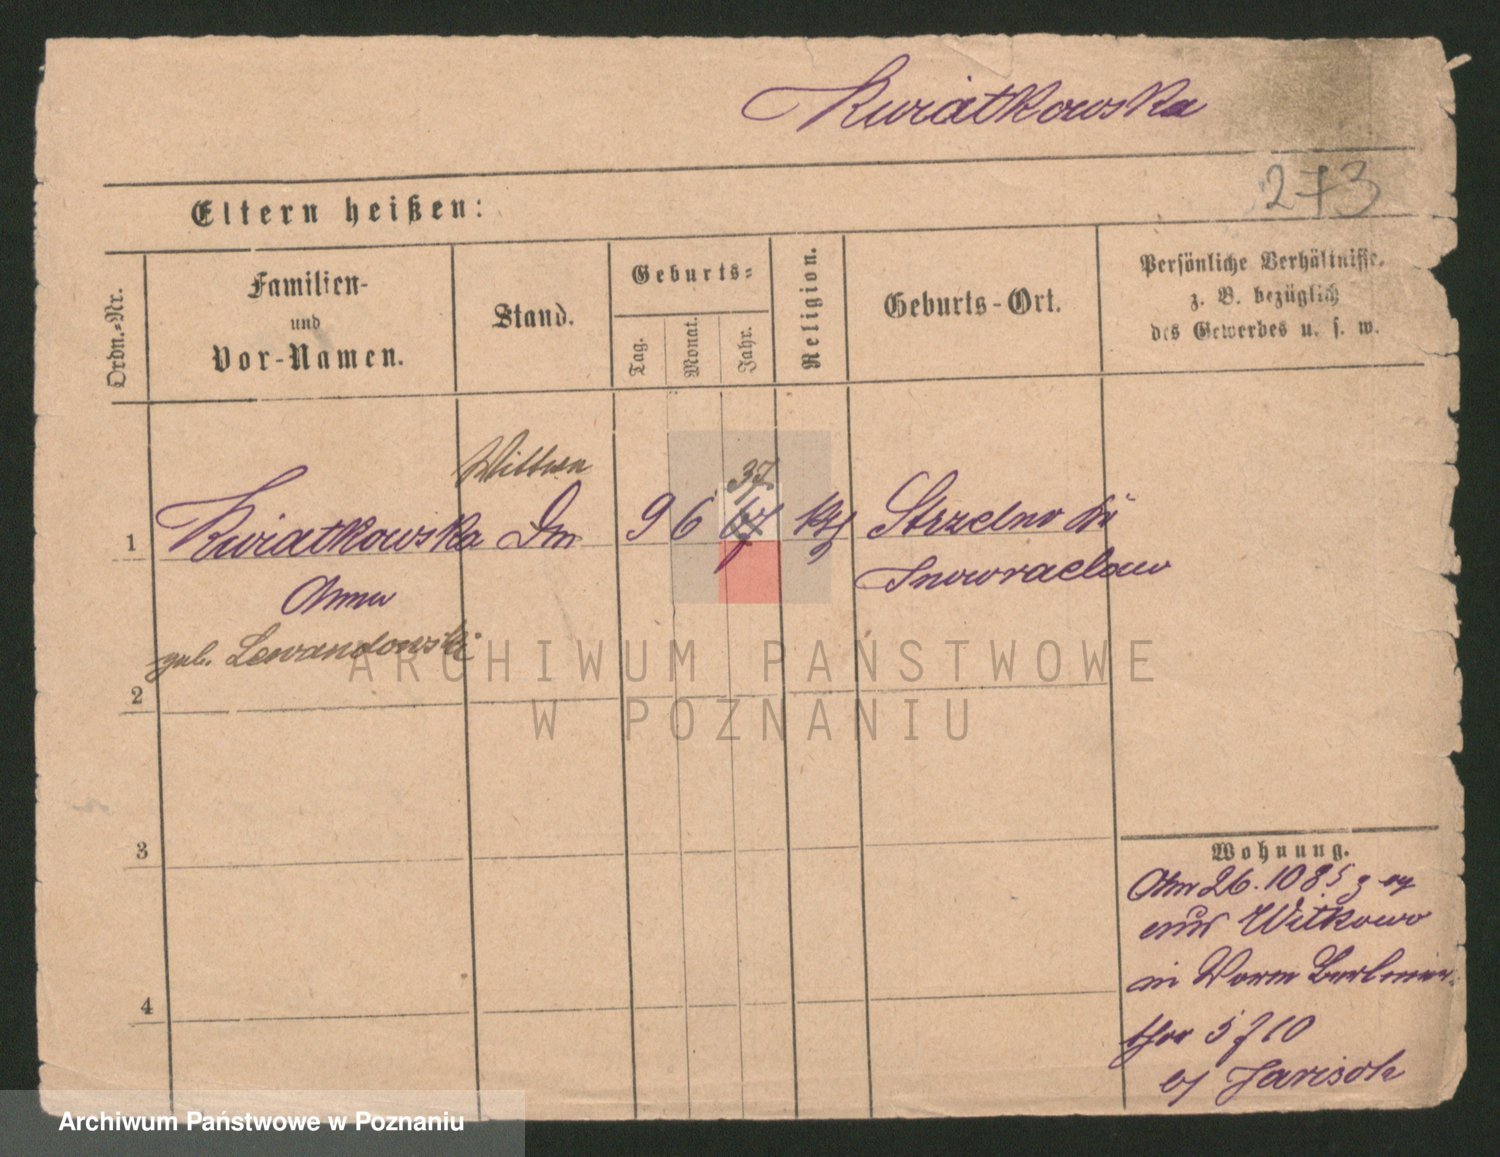 Kwiatkowska
273
Eltern heißen:
Ordn.-Nr.
Familien-
und
Vor-Namen.
Stand.
Geburts-
Tag.
Monat.
Jahr.
Religion.
Geburts-Ort.
Persönliche Verhältnisse.
z. B. bezüglich
des Gewerbes u. s. w.
Wittwe
37.
1 Kwiatkowska Dm 9 6 67 kth Strzelno Kr
Anna Inowraclaw
geb. Lewandowski
2
3
4
Wohnung.
Am 26. 10 85 z
aus Witkowo
in Vorm Berliner-
thor 5 f 10
b/ Jarisch
ARCHIWUM PAŃSTWOWE
W POZNANIU
Archiwum Państwowe w Poznaniu